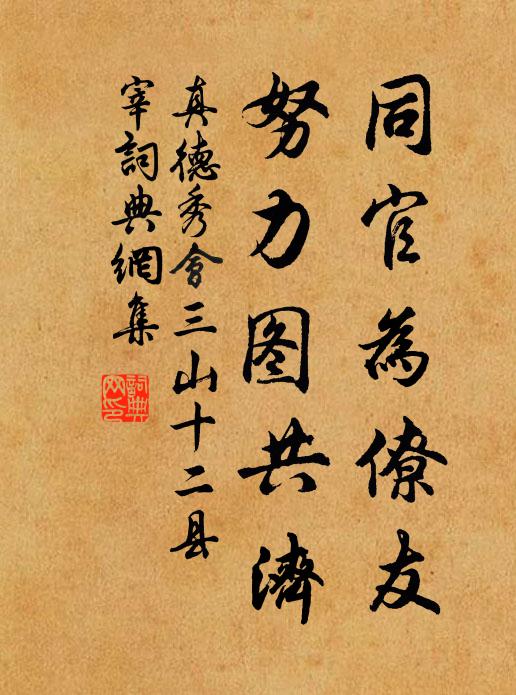 同官為僚友
努力图共濟
真德秀會三山十二县
宰詞典網集
詞典网印